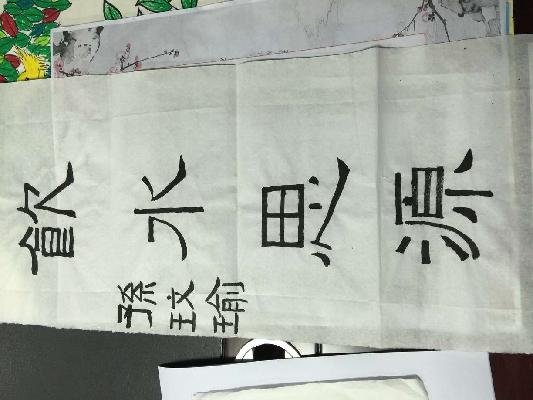 飲水思源
孫玟瑜